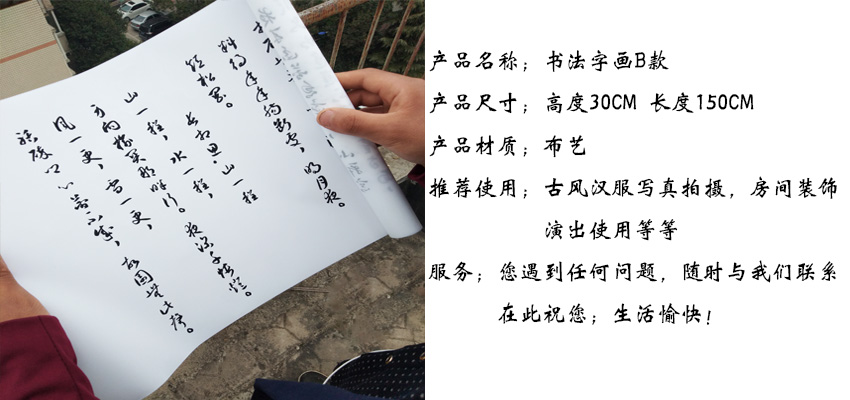 料得年年肠断处，明月夜。
短松冈。
长相思·山一程
山一程，水一程，
身向榆关那畔行。夜深千帐灯。
风一更，雪一更，
聒碎乡心梦不成，故园无此声。
产品名称；书法字画B款
产品尺寸；高度30CM 长度150CM
产品材质；布艺
推荐使用；古风汉服写真拍摄，房间装饰
演出使用等等
服务；您遇到任何问题，随时与我们联系
在此祝您；生活愉快！